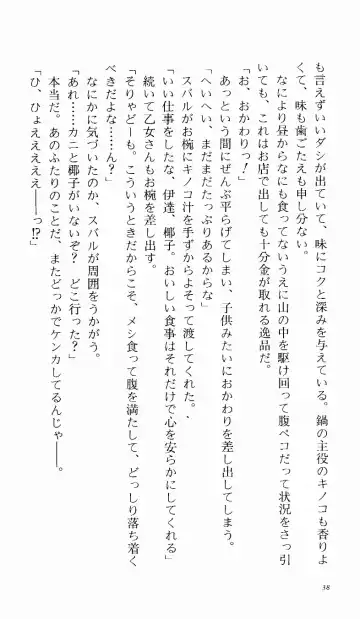 も言えずいいダシが出ていて、味にコクと深みを与えている。鍋の主役のキノコも香りよ
くて、味も歯ごたえも申し分ない。
なにより昼からなにも食ってないうえに山の中を駆け回って腹ペコだって状況をさっ引
いても、これはお店で出しても十分金が取れる逸品だ。
「お、おかわりっ！」
あっという間にぜんぶ平らげてしまい、子供みたいにおかわりを差し出してしまう。
「へいへい、まだまだたっぷりあるからな」
スバルがお椀にキノコ汁を手ずからよそって渡してくれた。
「いい仕事をしたな、伊達、椰子。おいしい食事はそれだけで心を安らかにしてくれる」
続いて乙女さんもお椀を差し出す。
「そりゃどーも。こういうときだからこそ、メシ食って腹を満たして、どっしり落ち着く
べきだよな……ん？」
なにかに気づいたのか、スバルが周囲をうかがう。
「あれ……カニと椰子がいないぞ？　どこ行った？」
本当だ。あのふたりのことだ、またどっかでケンカしてるんじゃ――。
「ひ、ひょええええぇ――っ!?」
38